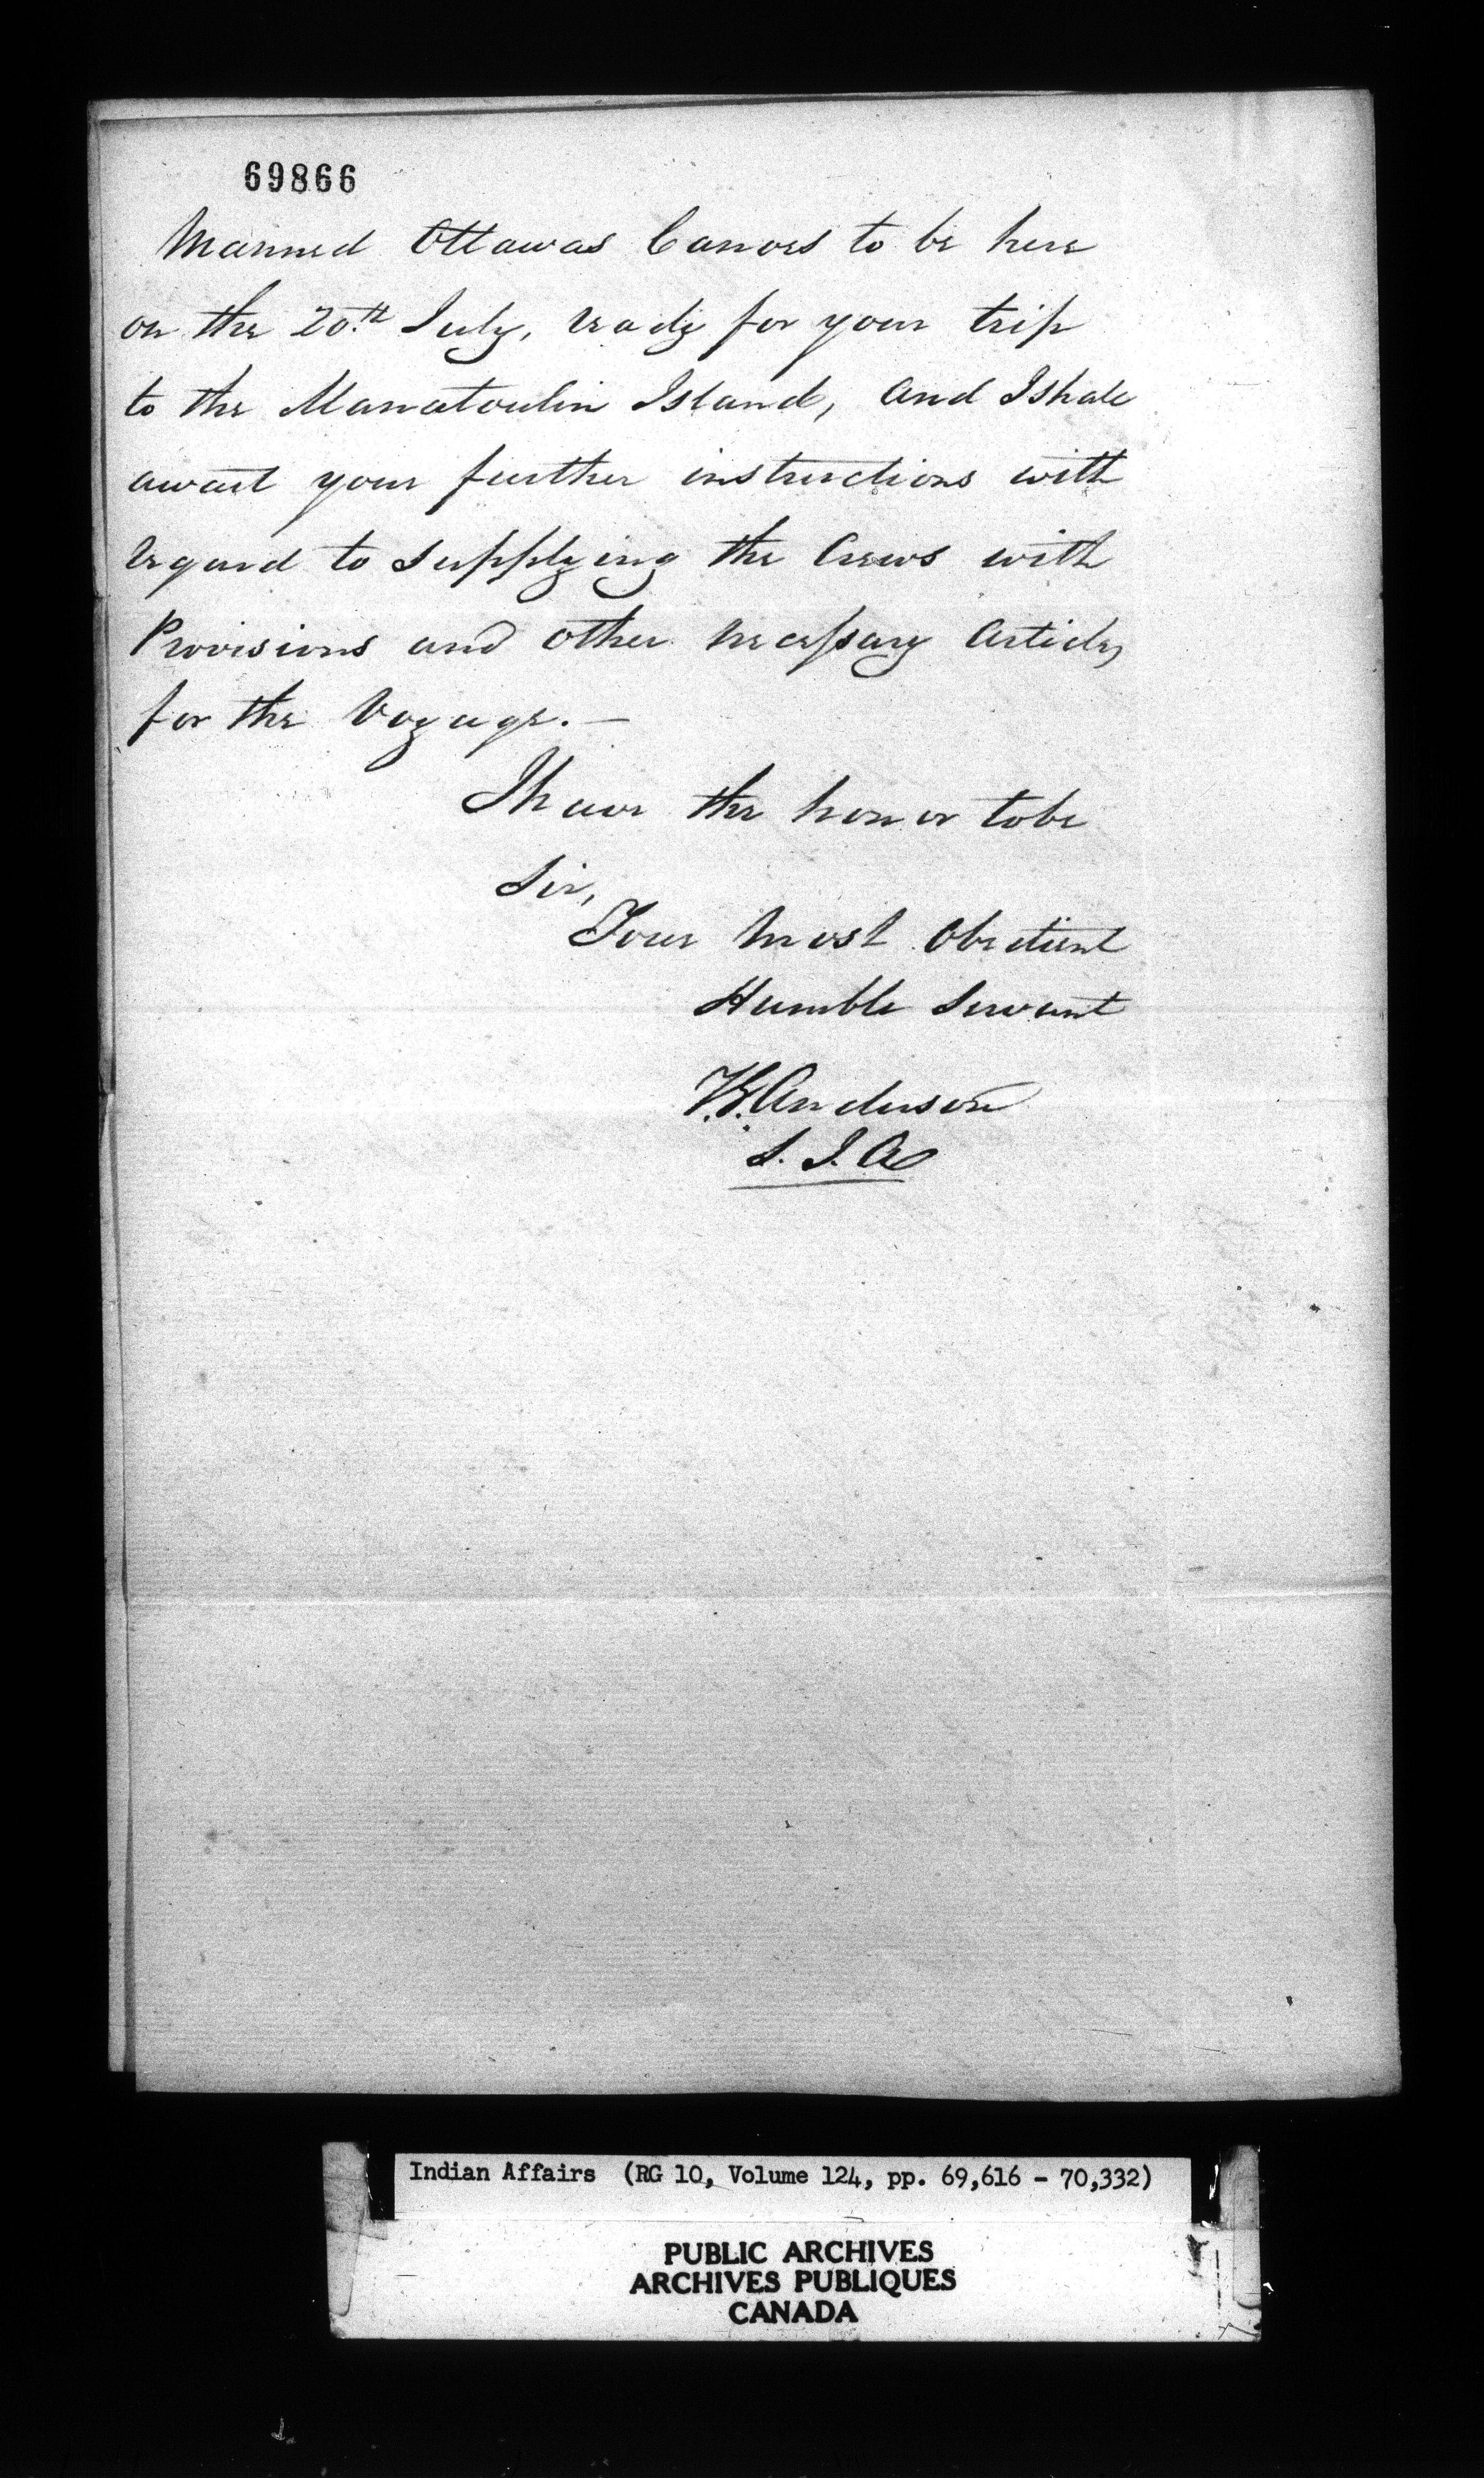 69866
Manned Ottawas Canoes to be here
on the 20.th July, ready for your trip
to the Manatoulin Island, and I shall
await your further instructions with
regard to supplying the Crews with
Provisions and other necessary Articles
for the Voyage. —
I have the honor to be
Sir,
Your most Obedient
Humble Servant
T.G. Anderson
S. I. A
Indian Affairs (RG 10, Volume 124, pp. 69,616 - 70,332)
PUBLIC ARCHIVES
ARCHIVES PUBLIQUES
CANADA